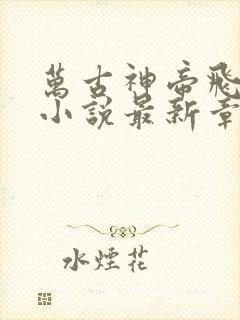 萬古神帝飛
小說最新章
水煙花